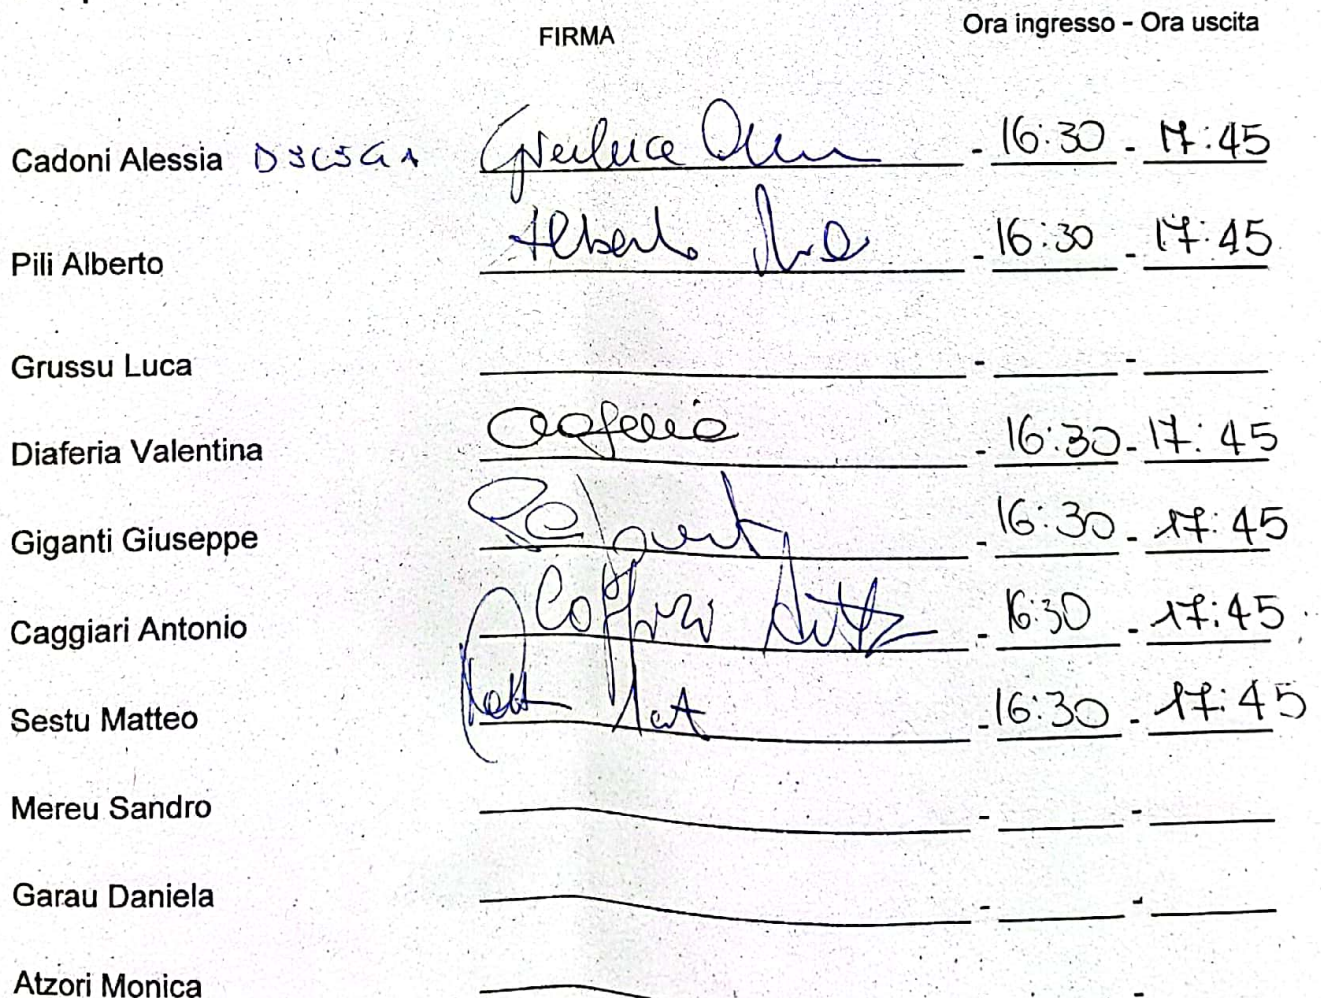 FIRMA Ora ingresso - Ora uscita
Cadoni Alessia Gianluca - 16:30 - 17:45
Pili Alberto Alberto - 16:30 - 17:45
Grussu Luca - -
Diaferia Valentina - 16:30 - 17:45
Giganti Giuseppe - 16:30 - 17:45
Caggiari Antonio - 16:30 - 17:45
Sestu Matteo - 16:30 - 17:45
Mereu Sandro - -
Garau Daniela - -
Atzori Monica -